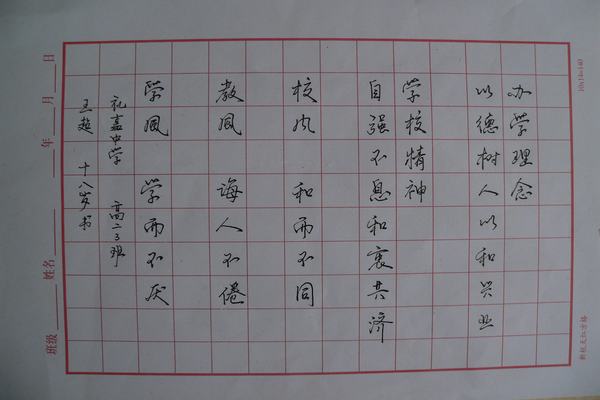 办学理念
以德树人以和兴业
学校精神
自强不息和衷共济
校风 和而不同
教风 诲人不倦
学风 学而不厌
礼嘉中学 高二3班
王超 十八岁书
班级 姓名 年 月 日
10×14=140